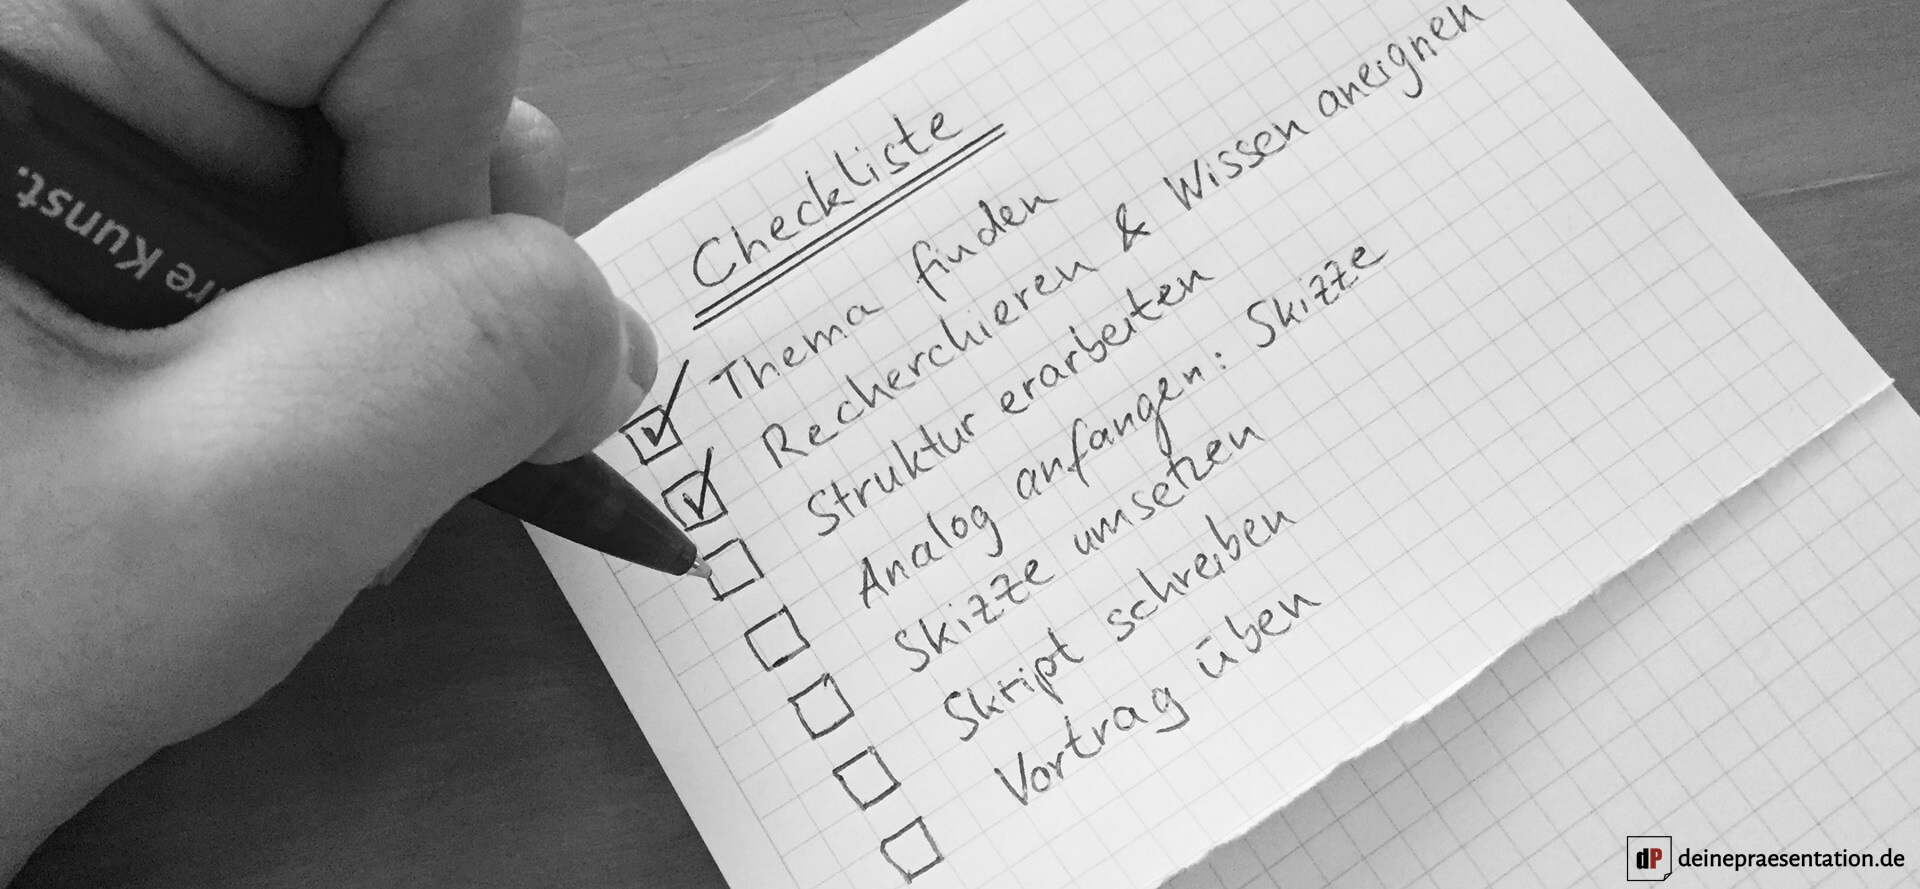 Checkliste
Thema finden
Recherchieren & Wissen aneignen
Struktur erarbeiten
Analog anfangen: Skizze
Skizze umsetzen
Skript schreiben
Vortrag üben
Kunst.
dP deinepraesentation.de